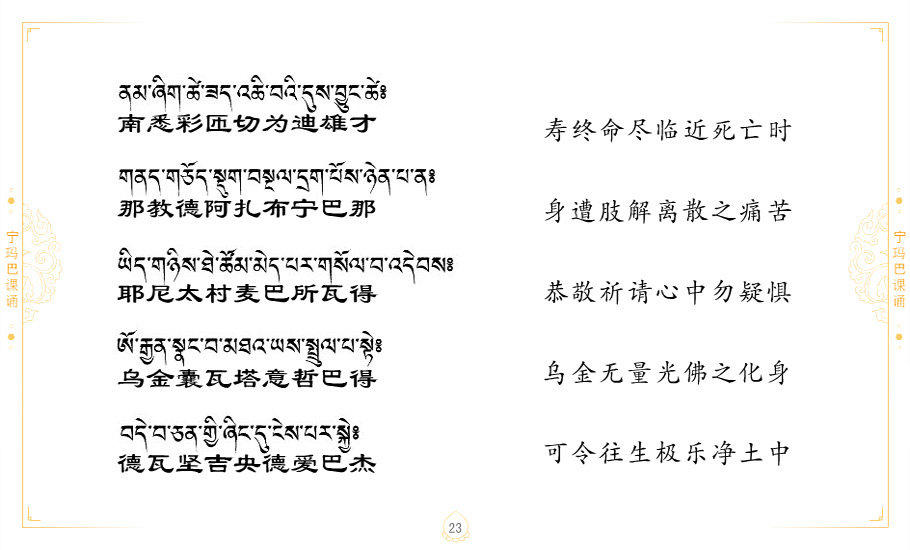 ནམ་ཞིག་ཚེ་ཟད་འཆི་བའི་དུས་བྱུང་ཚེ༔
南悉彩匝切为迪雄才
寿终命尽临近死亡时
གནད་གཅོད་སྡུག་བསྔལ་དྲག་པོས་ཉེན་པ་ན༔
那教德阿扎布宁巴那
身遭肢解离散之痛苦
ཡིད་གཉིས་ཐེ་ཚོམ་མེད་པར་གསོལ་བ་འདེབས༔
耶尼太村麦巴所瓦得
恭敬祈请心中勿疑惧
ཨོ་རྒྱན་སྣང་བ་མཐའ་ཡས་སྤྲུལ་པ་སྟེ༔
乌金囊瓦塔意哲巴得
乌金无量光佛之化身
བདེ་བ་ཅན་གྱི་ཞིང་དུ་ངེས་པར་སྐྱེ༔
德瓦坚吉央德爱巴杰
可令往生极乐净土中
宁玛巴课诵
宁玛巴课诵
23